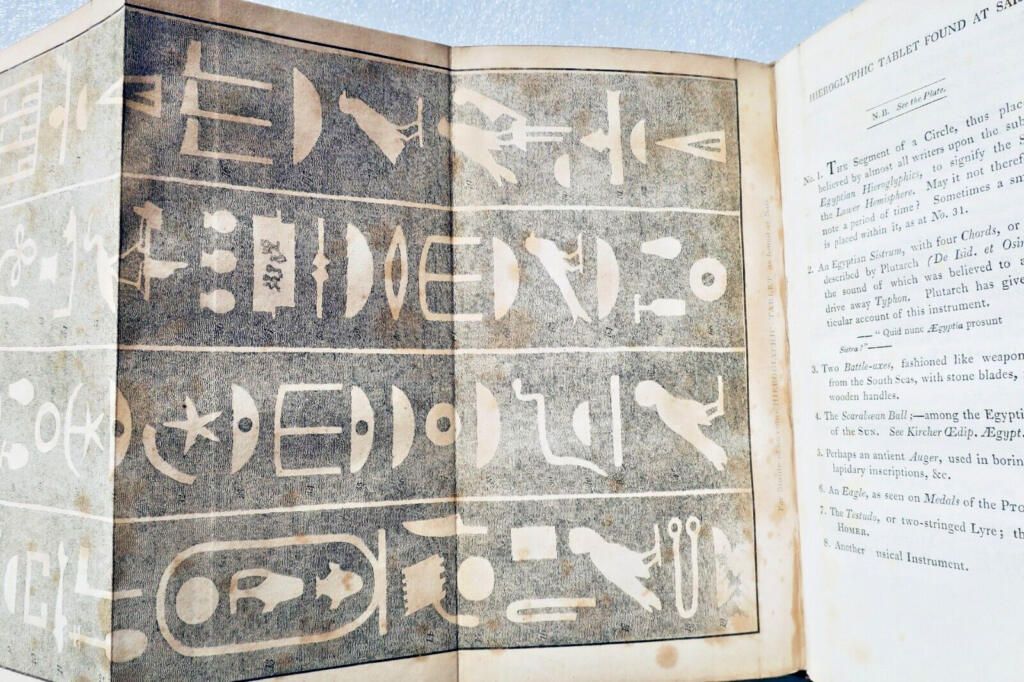 HIEROGLYPHIC TABLET FOUND AT
N.B. See the Plate.
No. 1. THE Segment of a Circle, thus plac
believed by almost all writers upon the sub
Egyptian Hieroglyphics, to signify the S
the Lower Hemisphere. May it not theref
note a period of time? Sometimes a sm
is placed within it, as at No. 31.
2. An Egyptian Sistrum, with four Chords, or
described by Plutarch (De Isid. et Osir
the sound of which was believed to a
drive away Typhon. Plutarch has give
ticular account of this instrument.
— " Quid nunc Ægyptia prosunt
Sistra?" —
3. Two Battle-axes, fashioned like weapon
from the South Seas, with stone blades,
wooden handles.
4. The Scarabæan Ball;—among the Egypti
of the SUN. See Kircher Œdip. Ægypt.
5. Perhaps an antient Auger, used in borin
lapidary inscriptions, &c.
6. An Eagle, as seen on Medals of the PTO
7. The Testudo, or two-stringed Lyre; th
HOMER.
8. Another usical Instrument.